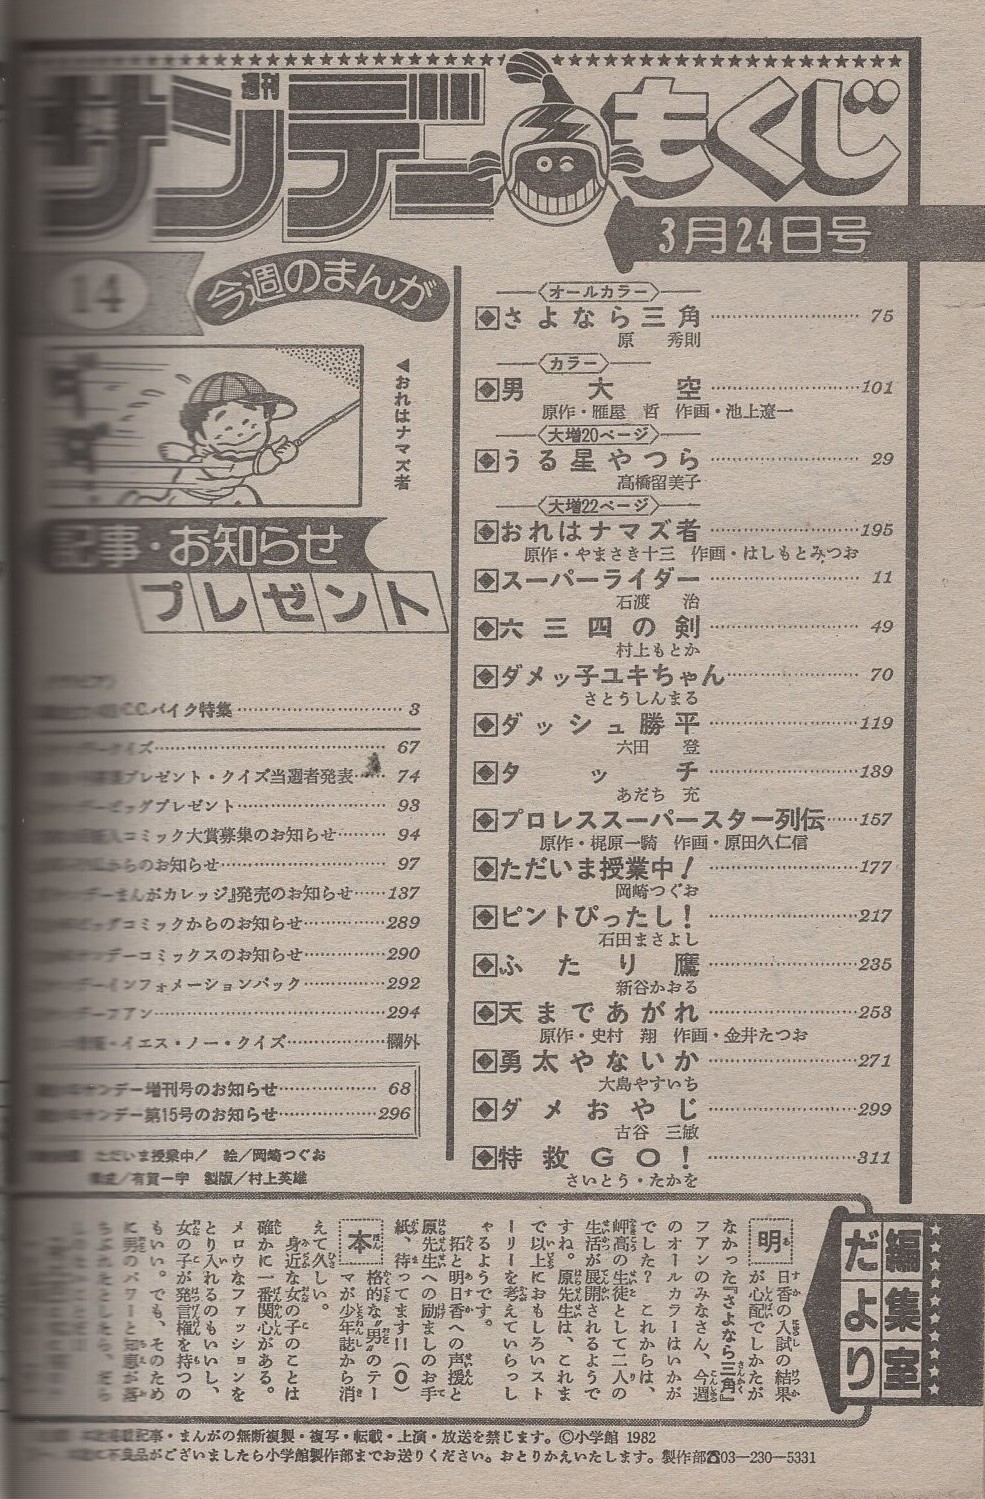 週刊
サンデー もくじ
3月24日号
14
今週のまんが
◀おれはナマズ者
オールカラー
さよなら三角……75
原 秀則
カラー
男大空……101
原作・雁屋 哲 作画・池上遼一
大増20ページ
うる星やつら……29
高橋留美子
大増22ページ
おれはナマズ者……195
原作・やまさき十三 作画・はしもとみつお
スーパーライダー……11
石渡 治
六三四の剣……49
村上もとか
ダメッ子ユキちゃん……70
さとうしんまる
ダッシュ勝平……119
六田 登
タッチ……139
あだち 充
プロレススーパースター列伝……157
原作・梶原一騎 作画・原田久仁信
ただいま授業中!……177
岡崎つぐお
ピントぴったし!……217
石田まさよし
ふたり鷹……235
新谷かおる
天まであがれ……253
原作・史村 翔 作画・金井たつお
勇太やないか……271
大島やすいち
ダメおやじ……299
古谷 三敏
特救GO!……311
さいとう・たかを
記事・お知らせ
プレゼント
C.C.バイク特集……3
クイズ……67
プレゼント・クイズ当選者発表……74
ビッグプレゼント……93
コミック大賞募集のお知らせ……94
からのお知らせ……97
まんがカレッジ』発売のお知らせ……137
ビッグコミックからのお知らせ……289
サンデーコミックスのお知らせ……290
インフォメーションパック……292
ファン……294
イエス・ノー・クイズ……欄外
サンデー増刊号のお知らせ……68
サンデー第15号のお知らせ……296
ただいま授業中! 絵/岡崎つぐお
構成/有賀一宇 製版/村上英雄
編集室だより
明日香の入試の結果
が心配でしかたが
なかった『さよなら三角』
ファンのみなさん、今週
のオールカラーはいかが
でした? これからは、
岬高の生徒として二人の
生活が展開されるようで
すね。原先生は、これま
で以上におもしろいスト
ーリーを考えていらっし
ゃるようです。
拓と明日香への声援と
原先生への励ましのお手
紙、待ってます!!(O)
本格的な“男”のテー
マが少年誌から消
えて久しい。
身近な女の子のことは
確かに一番関心がある。
メロウなファッションを
とり入れるのもいいし、
女の子が発言権を持つの
もいい。でも、そのため
に男のパワーと知恵が落
記事・まんがの無断複製・複写・転載・上演・放送を禁じます。©小学館 1982
不良品がございましたら小学館製作部までお送りください。おとりかえいたします。製作部☎03―230―5331